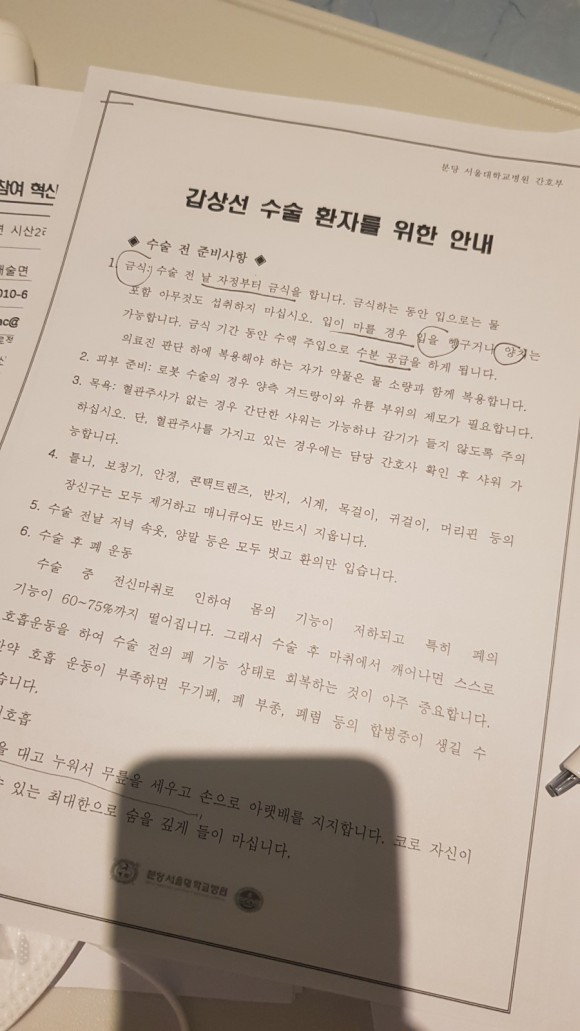 분당 서울대학교병원 간호부
참여 혁신
시산2리
예술면
010-6
ac@
갑상선 수술 환자를 위한 안내
◆ 수술 전 준비사항 ◆
1. 금식: 수술 전 날 자정부터 금식을 합니다. 금식하는 동안 입으로는 물
포함 아무것도 섭취하지 마십시오. 입이 마를 경우 입을 헹구거나 양치는
가능합니다. 금식 기간 동안 수액 주입으로 수분 공급을 하게 됩니다.
의료진 판단 하에 복용해야 하는 자가 약물은 물 소량과 함께 복용합니다.
2. 피부 준비: 로봇 수술의 경우 양측 겨드랑이와 유륜 부위의 제모가 필요합니다.
3. 목욕: 혈관주사가 없는 경우 간단한 샤워는 가능하나 감기가 들지 않도록 주의
하십시오. 단, 혈관주사를 가지고 있는 경우에는 담당 간호사 확인 후 샤워 가
능합니다.
4. 틀니, 보청기, 안경, 콘택트렌즈, 반지, 시계, 목걸이, 귀걸이, 머리핀 등의
장신구는 모두 제거하고 매니큐어도 반드시 지웁니다.
5. 수술 전날 저녁 속옷, 양말 등은 모두 벗고 환의만 입습니다.
6. 수술 후 폐 운동
수술 중 전신마취로 인하여 몸의 기능이 저하되고 특히 폐의
기능이 60~75%까지 떨어집니다. 그래서 수술 후 마취에서 깨어나면 스스로
호흡운동을 하여 수술 전의 폐 기능 상태로 회복하는 것이 아주 중요합니다.
만약 호흡 운동이 부족하면 무기폐, 폐 부종, 폐렴 등의 합병증이 생길 수
습니다.
호흡
을 대고 누워서 무릎을 세우고 손으로 아랫배를 지지합니다. 코로 자신이
수 있는 최대한으로 숨을 깊게 들이 마십니다.
분당서울대학교병원